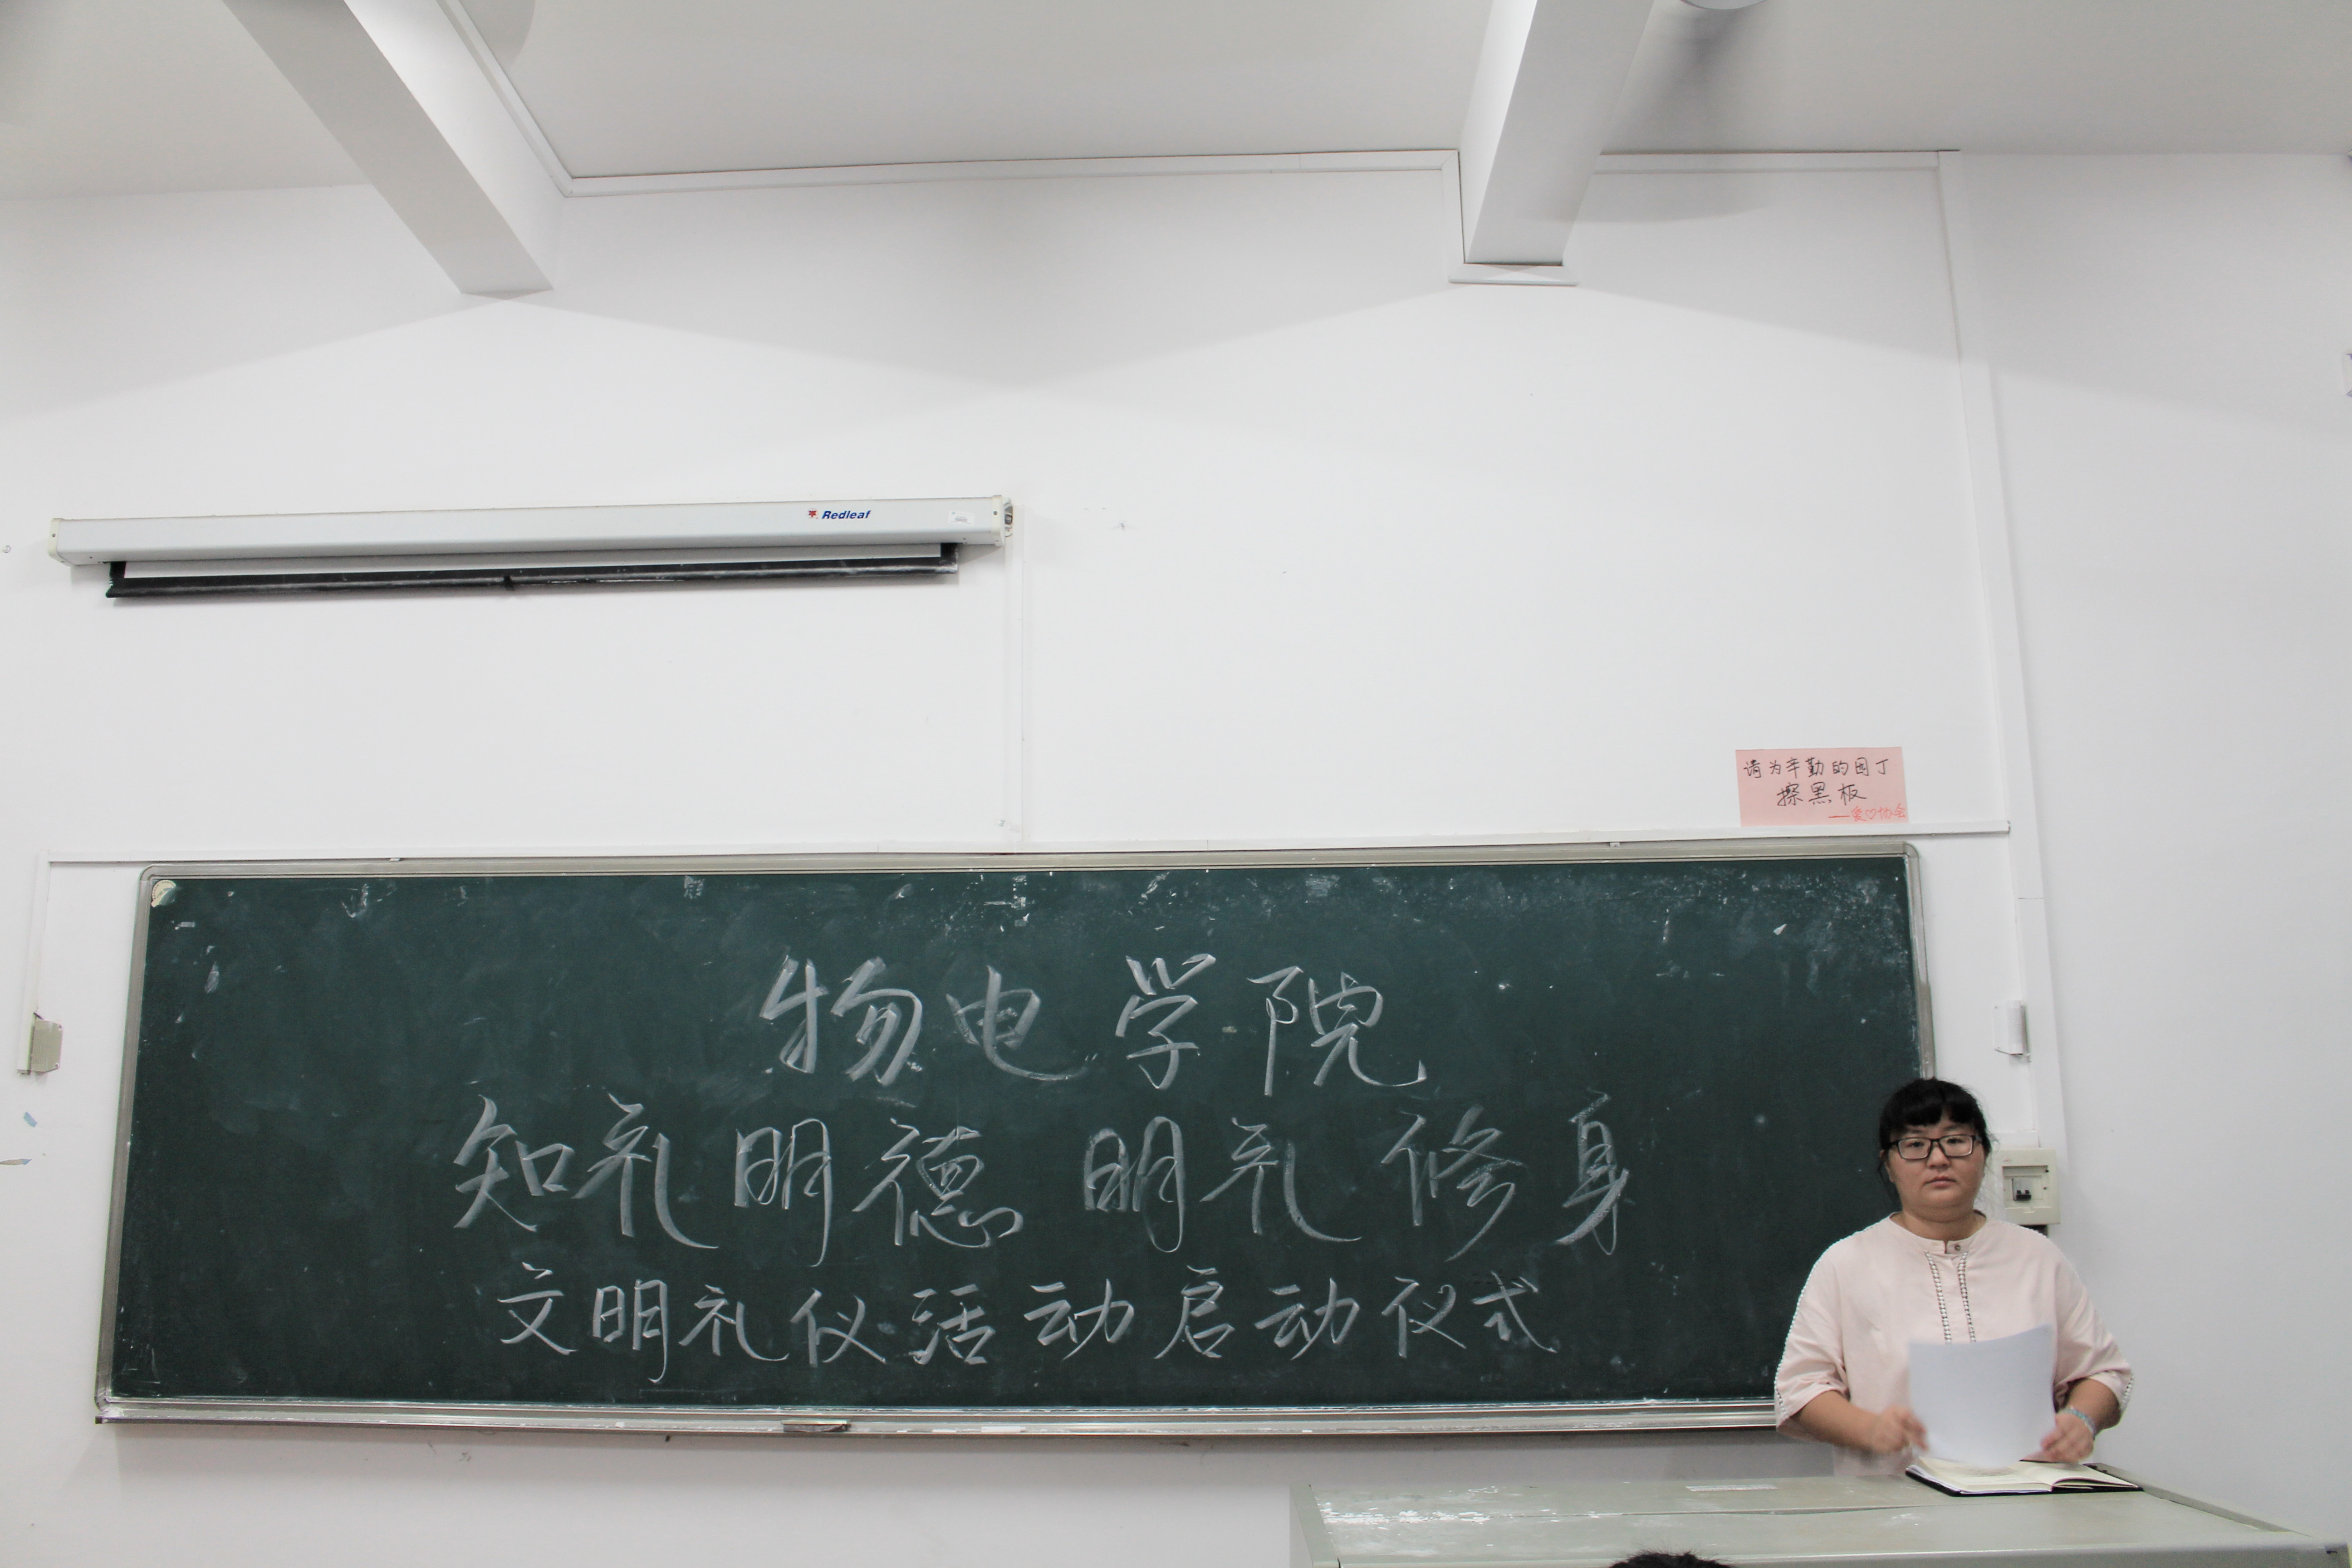 Redleaf
请为辛勤的园丁
擦黑板
——爱♡协会
物电学院
知礼明德 明礼修身
文明礼仪活动启动仪式